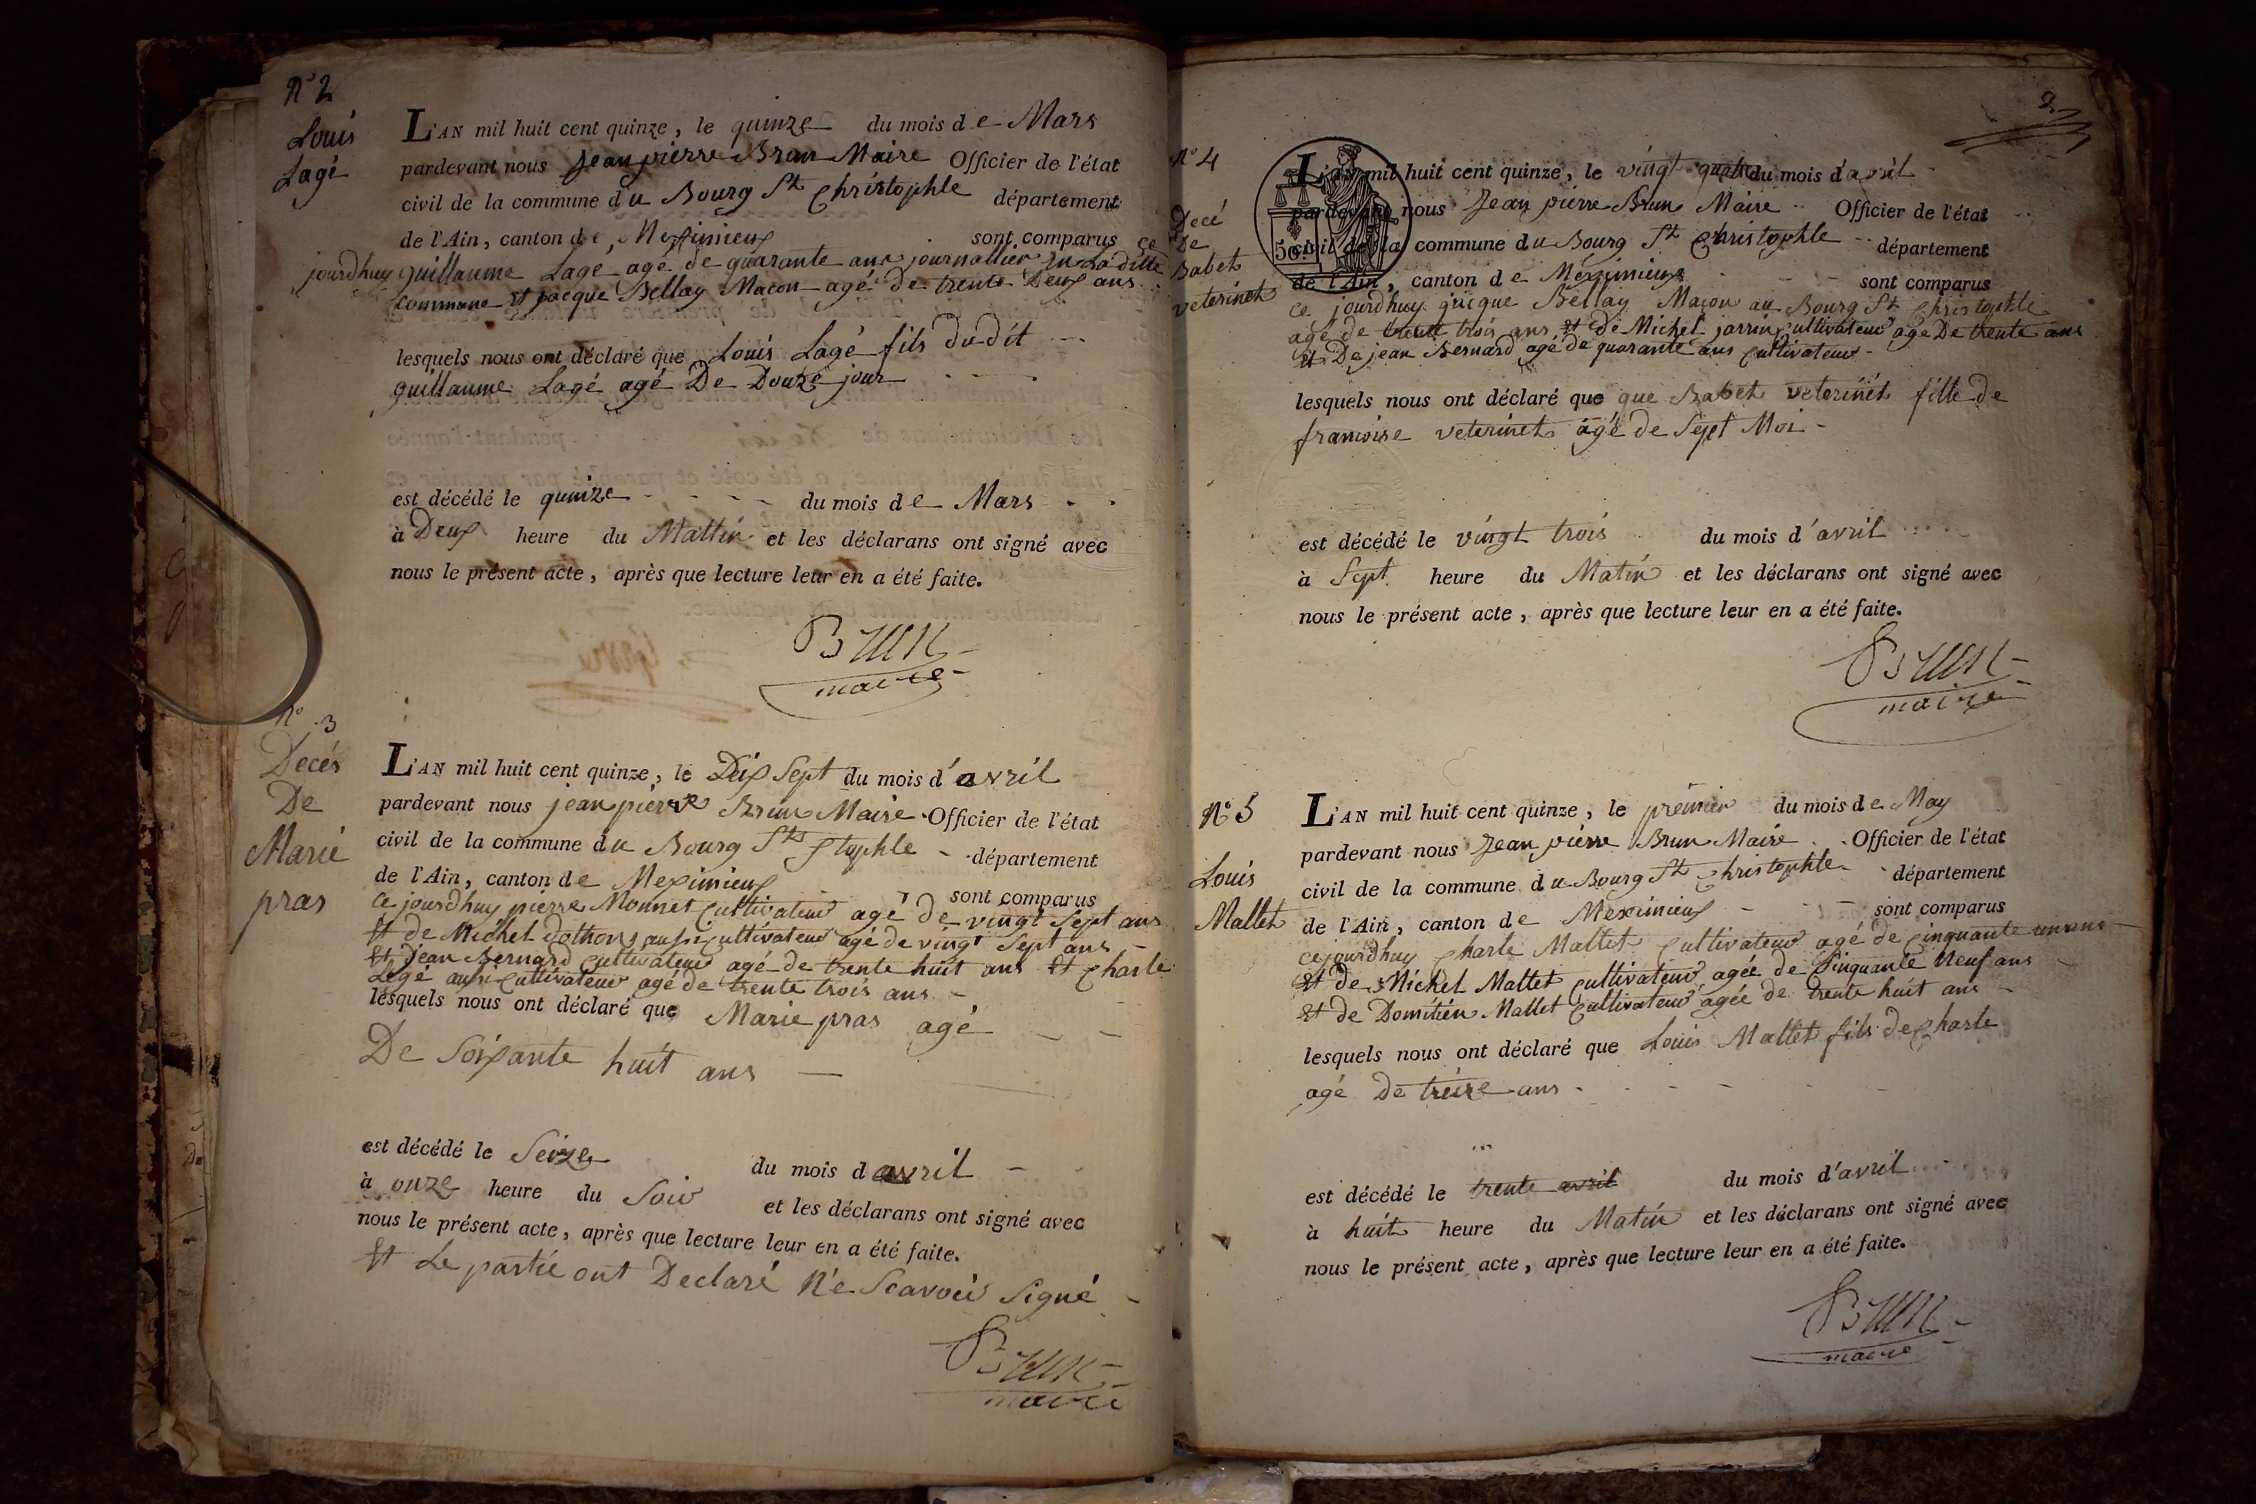 N° 2
Louis
Lagé
L'AN mil huit cent quinze, le quinze du mois de Mars
pardevant nous Jean pierre Brun Maire Officier de l'état
civil de la commune du Bourg St Christophle département
de l'Ain, canton de Meximieux sont comparus ce
jourdhuy guillaume Lagé agé de quarante ans journallier en La ditte
commune Et jacque Bellay Macon agé de trente Deux ans
lesquels nous ont déclaré que Louis Lagé fils dudit
guillaume Lagé agé De Douze jour
est décédé le quinze du mois de Mars
à Deux heure du Mattin et les déclarans ont signé avec
nous le présent acte, après que lecture leur en a été faite.
Brun
maire
N° 3
Decés
De
Marie
pras
L'AN mil huit cent quinze, le Dix Sept du mois d'avril
pardevant nous jean pierre Brun Maire Officier de l'état
civil de la commune du Bourg St Stophle département
de l'Ain, canton de Meximieux sont comparus
Ce jourdhuy pierre Monnet Cultivateur agé de vingt Sept ans
Et de Michel aussi Cultivateur agé de vingt Sept ans
Et Jean Bernard Cultivateur agé de trente huit ans Et Charle
Lagé aussi Cultivateur agé de trente trois ans
lesquels nous ont déclaré que Marie pras agé
De Soixante huit ans
est décédé le Seize du mois d avril
à onze heure du Soir et les déclarans ont signé avec
nous le présent acte, après que lecture leur en a été faite.
Et Le partie ont Declaré Ne Scavoir Signé
Brun
maire
2
N° 4
Decé
De
Babet
veterinet
50
L'AN mil huit cent quinze, le vingt quatre du mois d'avril
pardevant nous Jean pierre Brun Maire Officier de l'état
civil de la commune du Bourg St Christophle département
de l'Ain, canton de Méximieux sont comparus
ce jourdhuy jacque Bellay Macon au Bourg St Christophle
agé de trente trois ans Et de Michel jarrin Cultivateur agé De trente ans
Et De jean Bernard agé de quarante ans Cultivateur
lesquels nous ont déclaré que que Babet veterinet fille de
francoise veterinet agé de Sept Moi
est décédé le vingt trois du mois d'avril
à Sept heure du Matin et les déclarans ont signé avec
nous le présent acte, après que lecture leur en a été faite.
Brun
maire
N° 5
Louis
Mallet
L'AN mil huit cent quinze, le premier du mois de May
pardevant nous Jean pierre Brun Maire Officier de l'état
civil de la commune du Bourg St Christophle département
de l'Ain, canton de Meximieux sont comparus
cejourdhuy Charle Mallet Cultivateur agé de Cinquante un ans
Et de Michel Mallet Cultivateur agée de Cinquante Neuf ans
Et de Domitien Mallet Cultivateur agée de trente huit ans
lesquels nous ont déclaré que Louis Mallet fils de Charle
agé De treize ans
est décédé le trente avril du mois d'avril
à huit heure du Matin et les déclarans ont signé avec
nous le présent acte, après que lecture leur en a été faite.
Brun
maire